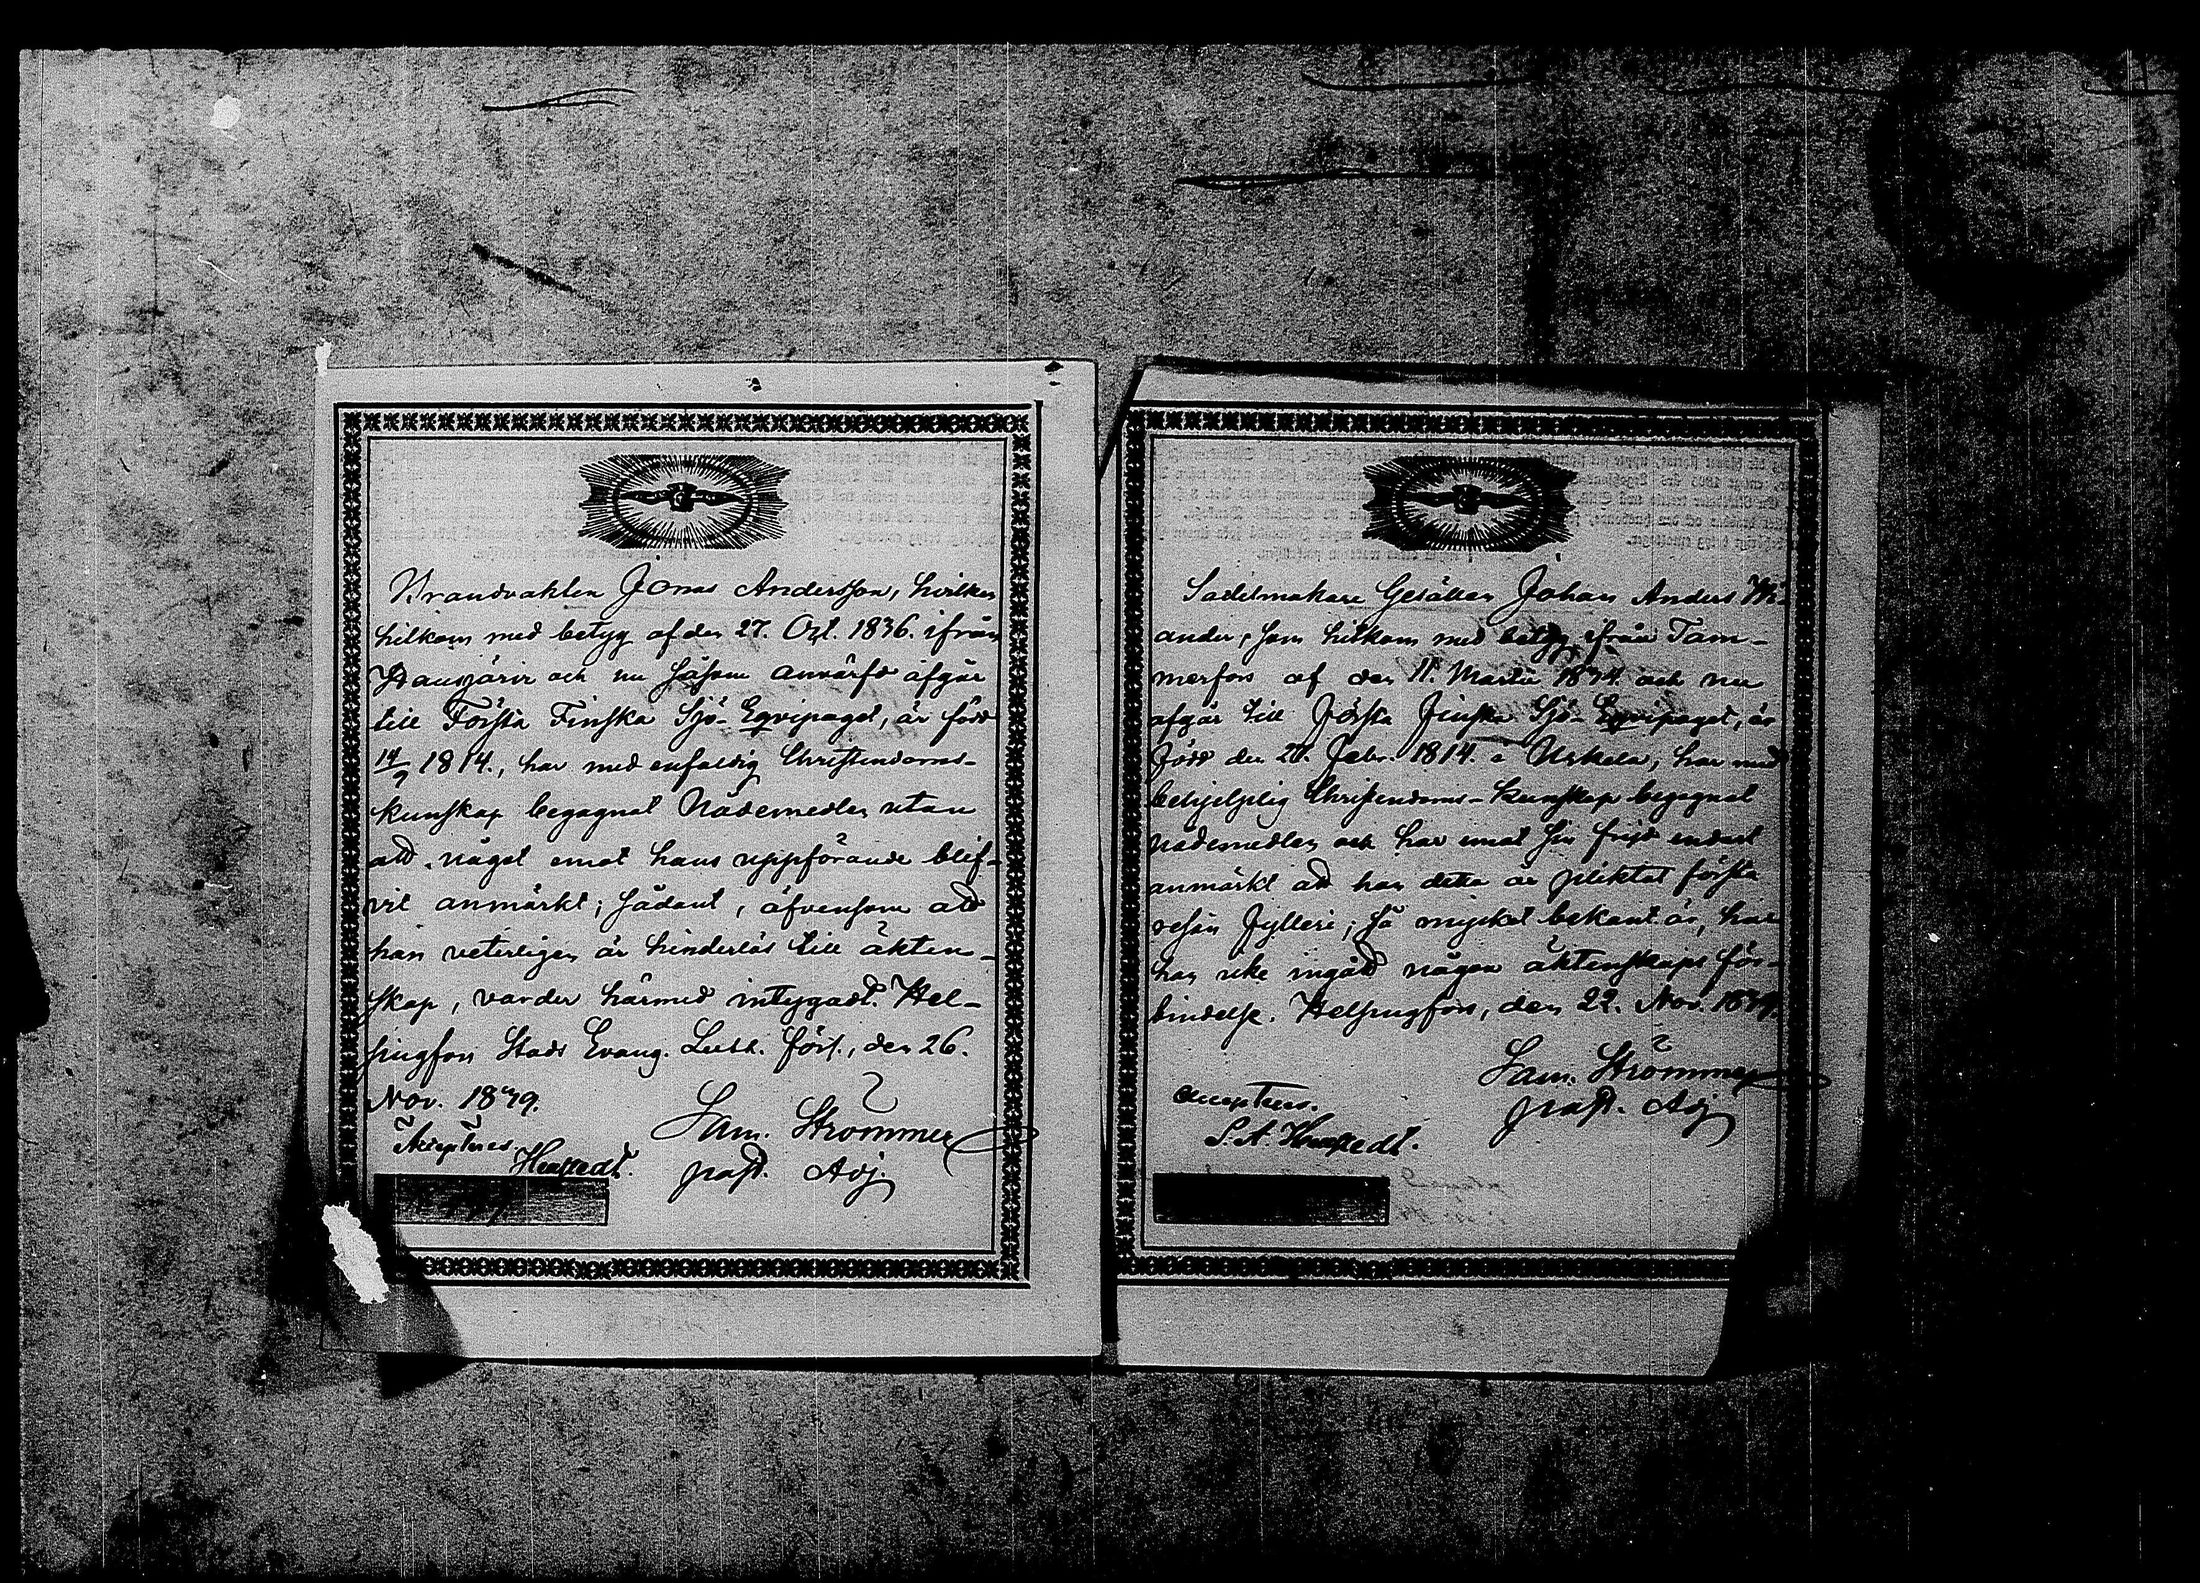 Brandvakten Jonas Andersson, hvilken
hitkom med betyg af den 27. Oct. 1836. ifrån
Hausjärvi och nu såsom anvärfd afgår
till Första Finska Sjö-Eqvipaget, är född
14/9 1814., har med enfaldig Christendoms-
kunskap begagnat Nådemedlen utan
att något emot hans uppförande blif-
vit anmärkt; sådant, äfvensom att
han veterligen är hinderlös till äkten-
skap, varder härmed intygadt. Hel-
singfors Stads Evang. Luth. förs., den 26.
Nov. 1839.
Sam. Strömmer
past. Adj.
Sadelmakare Gesällen Johan Anders
ander, som hitkom med betyg ifrån Tam-
merfors af den 11. Martii och nu
afgår till Första Finska Sjö-Eqvipaget, är
född den Febr. 1814. i Uskela, har med
behjelplig Christendoms-kunskap begagnat
nådemedlen och har emot sin frejd endast
anmärkt att han detta år pliktat första
resan fylleri; så mycket bekant är, har
han icke ingått någon äktenskaps för-
bindelse. Helsingfors, den 22. Nov. 1839.
Sam. Strömmer
past. Adj.